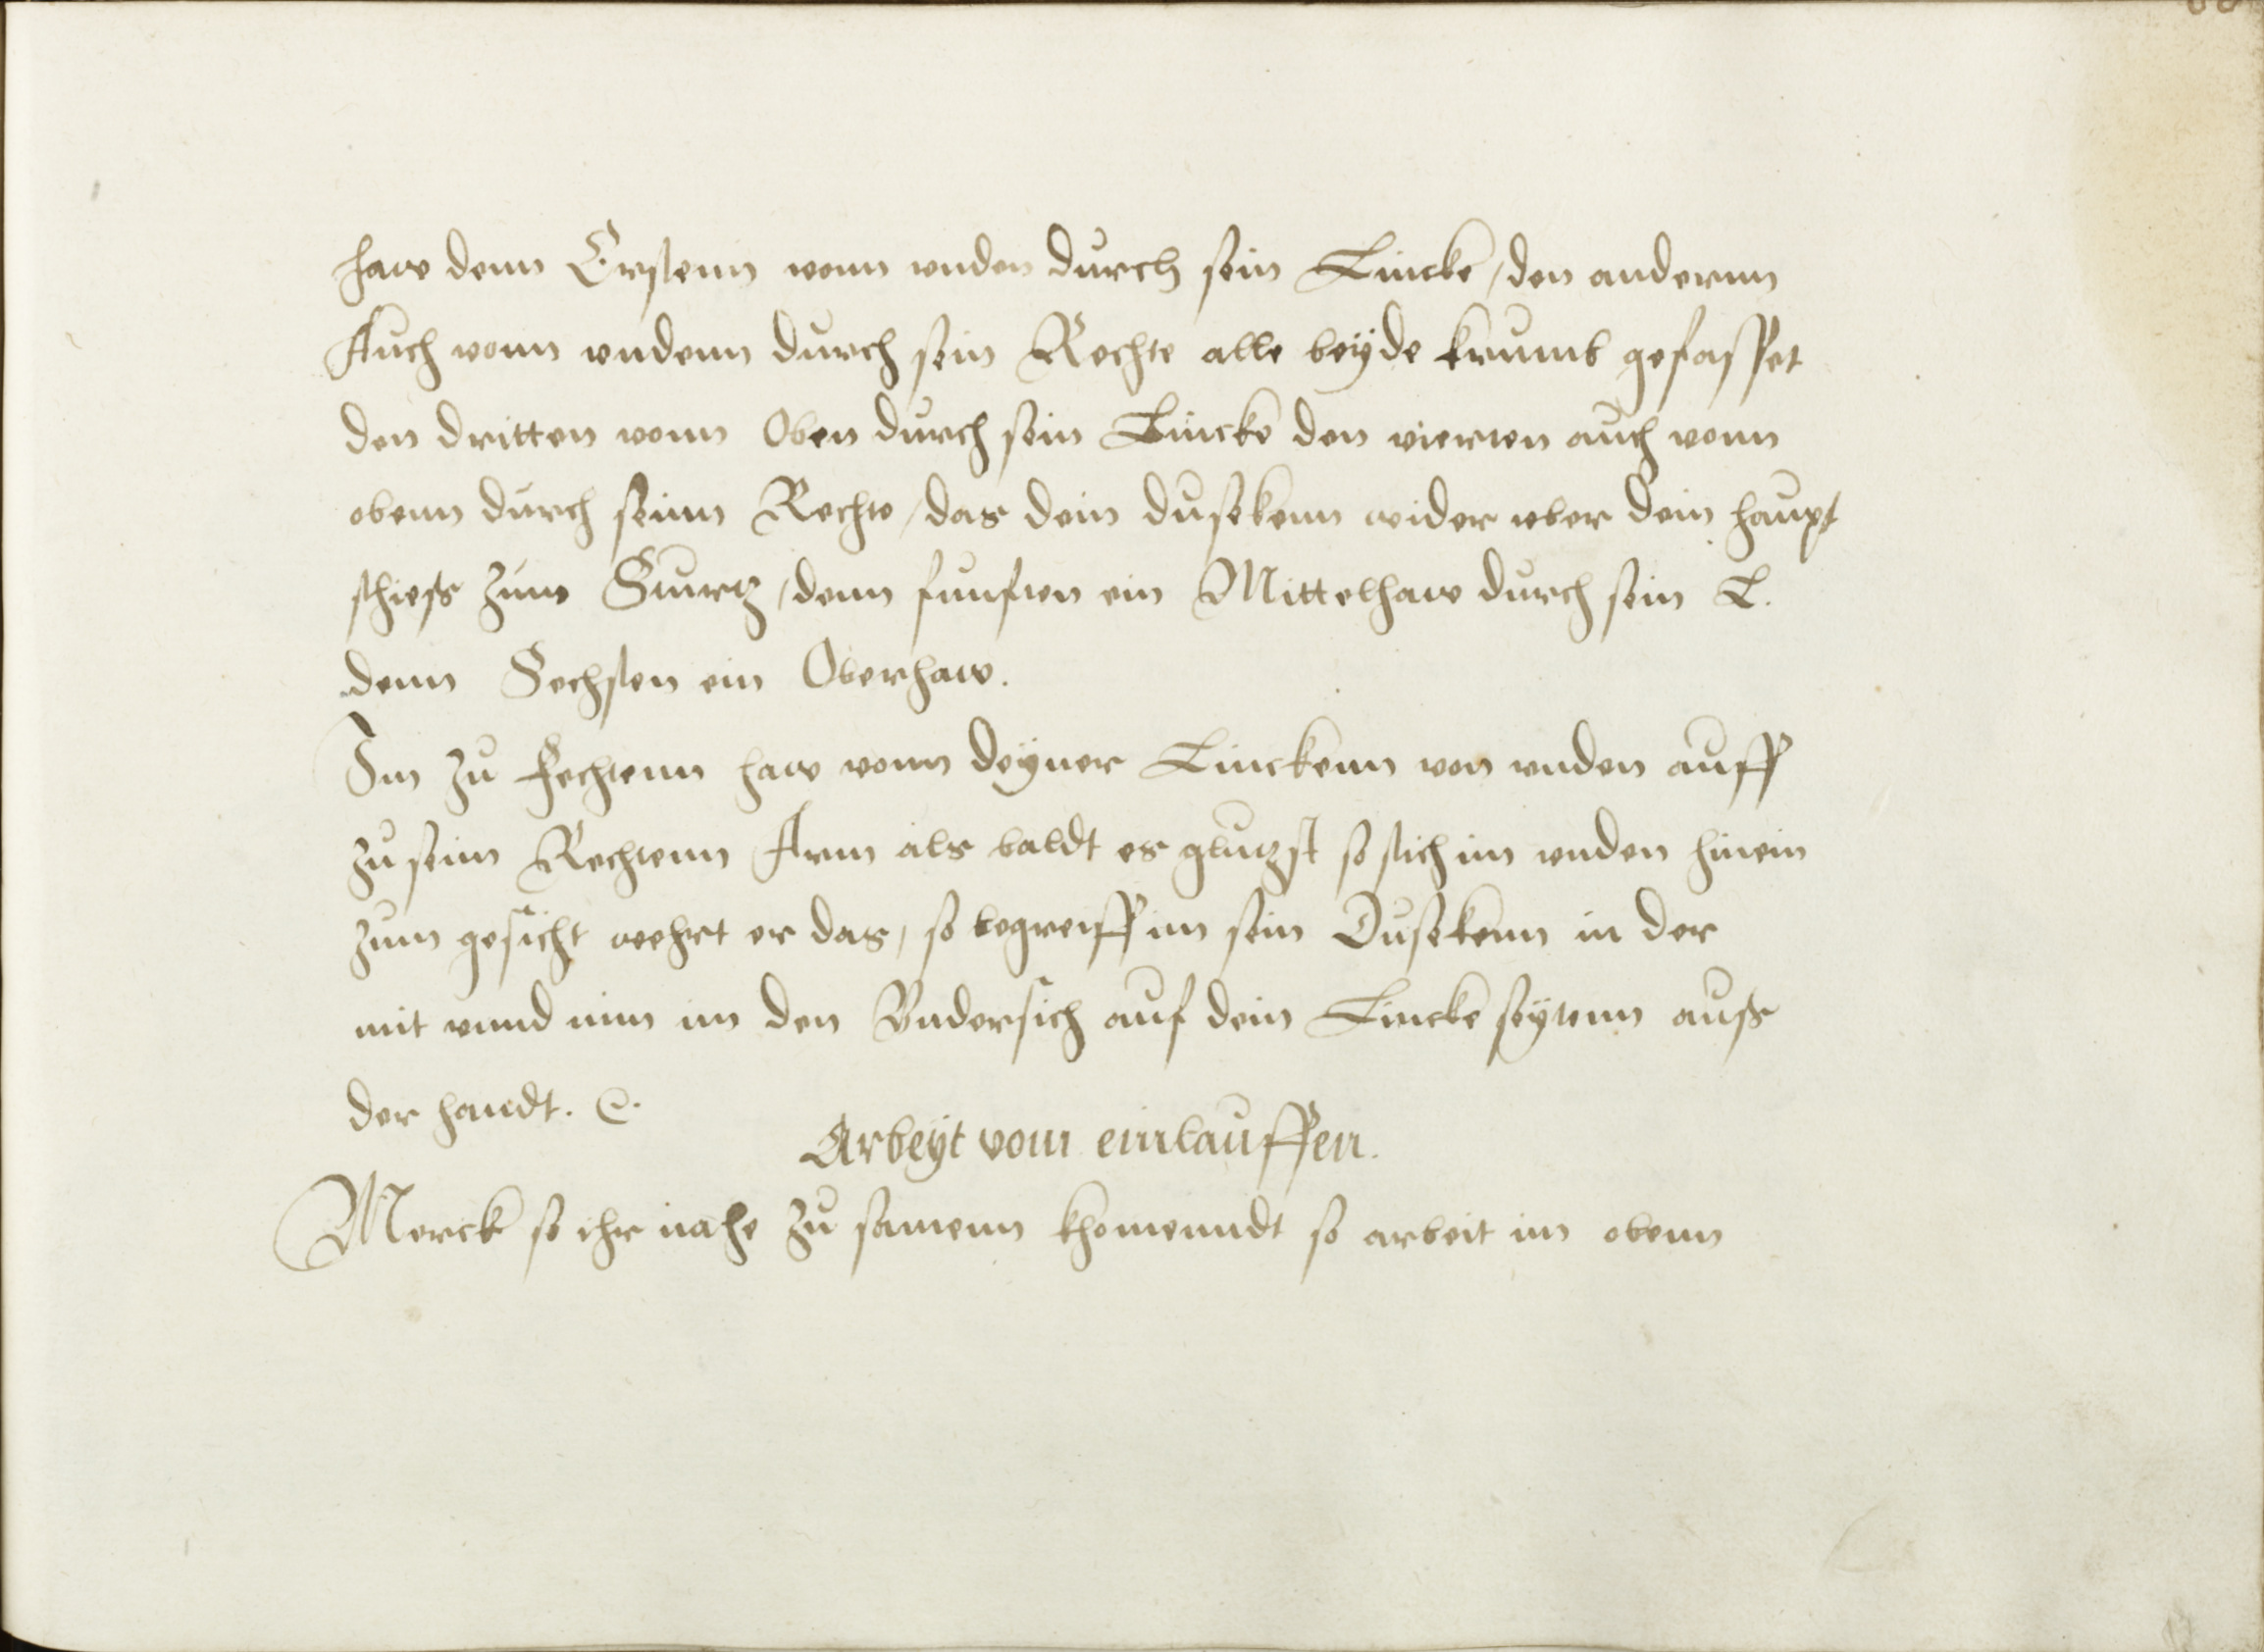 haw denn Erstenn vonn vnden durch sein Lincke / den anderenn
Auch vonn vndenn durch sein Rechte alle beyde krumb gefasset
den dritten vonn Oben durch sein Lincke den vierten auch vonn
obenn durch seinn Rechte / das dein dusekenn wider vber dein haupt
schiess zum Sturtz / denn funften ein Mittelhaw durch sein L.
denn Sechsten ein Oberhaw.
Im zu Fechtenn haw vonn deyner Linckenn von vnden auff
zu seinn Rechtenn Arm als baldt es glutzst so stich im vnden hinein
zum gesicht wehrt er das, so begreiff im sein Dusekenn in der
mit vnnd nim im den Vndersich auf dein Lincke seytenn auss
der handt.
Arbeyt vom einlauffen.
Merck so ihr nahe zu samenn khomenndt so arbeit im obenn